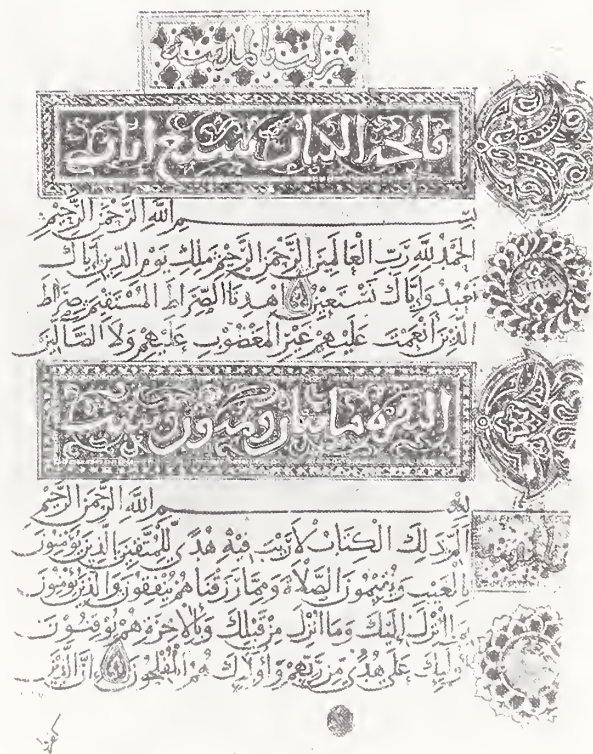 نزلت بالمدينة
فاتحة الكتاب سبع ايات
بِسْمِ اللَّهِ الرَّحْمَنِ الرَّحِيمِ
الْحَمْدُ لِلَّهِ رَبِّ الْعَالَمِينَ الرَّحْمَنِ الرَّحِيمِ مَلِكِ يَوْمِ الدِّينِ إِيَّاكَ
نَعْبُدُ وَإِيَّاكَ نَسْتَعِينُ اهْدِنَا الصِّرَاطَ الْمُسْتَقِيمَ صِرَاطَ
الَّذِينَ أَنْعَمْتَ عَلَيْهِمْ غَيْرِ الْمَغْضُوبِ عَلَيْهِمْ وَلَا الضَّالِّينَ
البقرة مائتان وثمانون وست
بِسْمِ اللَّهِ الرَّحْمَنِ الرَّحِيمِ
الم ذَلِكَ الْكِتَابُ لَا رَيْبَ فِيهِ هُدًى لِلْمُتَّقِينَ الَّذِينَ يُؤْمِنُونَ
بِالْغَيْبِ وَيُقِيمُونَ الصَّلَاةَ وَمِمَّا رَزَقْنَاهُمْ يُنْفِقُونَ وَالَّذِينَ يُؤْمِنُونَ
بِمَا أُنْزِلَ إِلَيْكَ وَمَا أُنْزِلَ مِنْ قَبْلِكَ وَبِالْآخِرَةِ هُمْ يُوقِنُونَ
أُولَئِكَ عَلَى هُدًى مِنْ رَبِّهِمْ وَأُولَئِكَ هُمُ الْمُفْلِحُونَ إِنَّ الَّذِينَ
كفروا